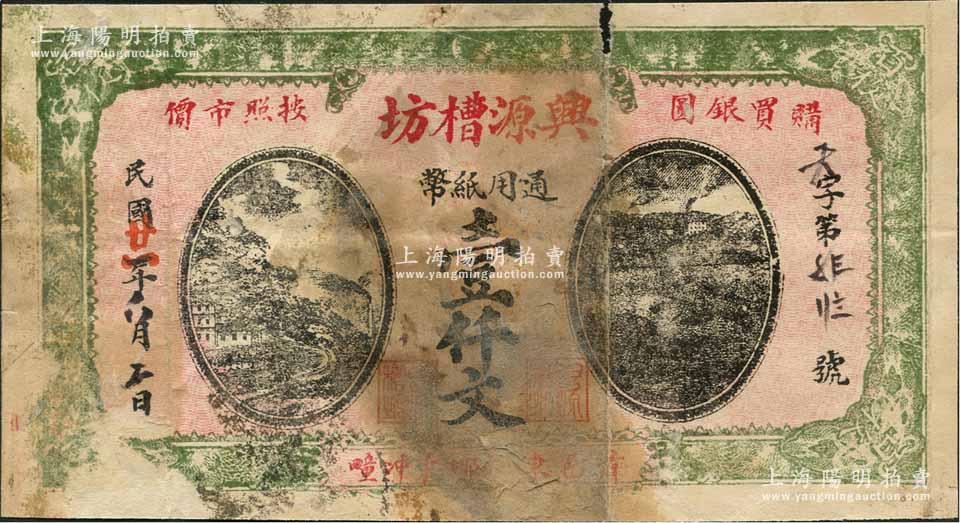 上海陽明拍賣
www.yangmingauction.com
上海陽明拍賣
www.yangmingauction.com
購買銀圓
興源槽坊
按照市價
字第
號
通用紙幣
壹仟文
上海陽明拍賣
www.yangmingauction.com
民國廿一年八月
日
上海陽明拍賣
www.yangmingauction.com